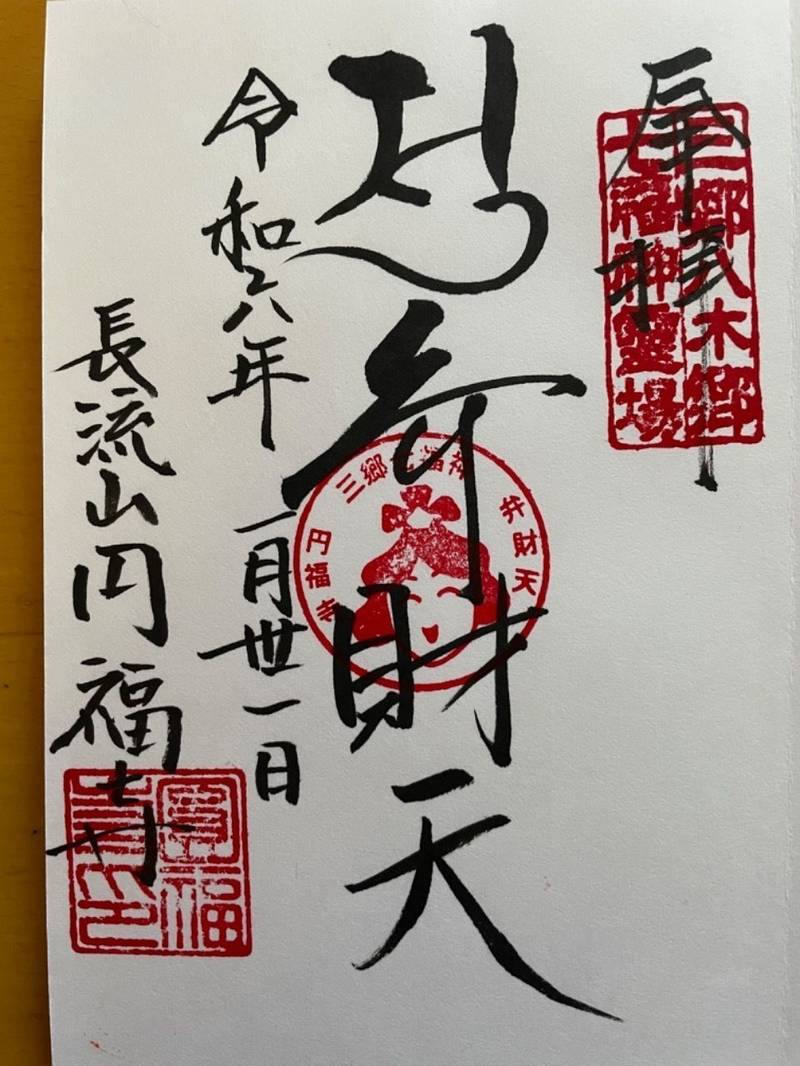 奉拝
三郷八木郷
七福神靈場
弁財天
三郷七福神
弁財天
円福寺
令和六年一月丗一日
長流山円福寺
圓福
寺印